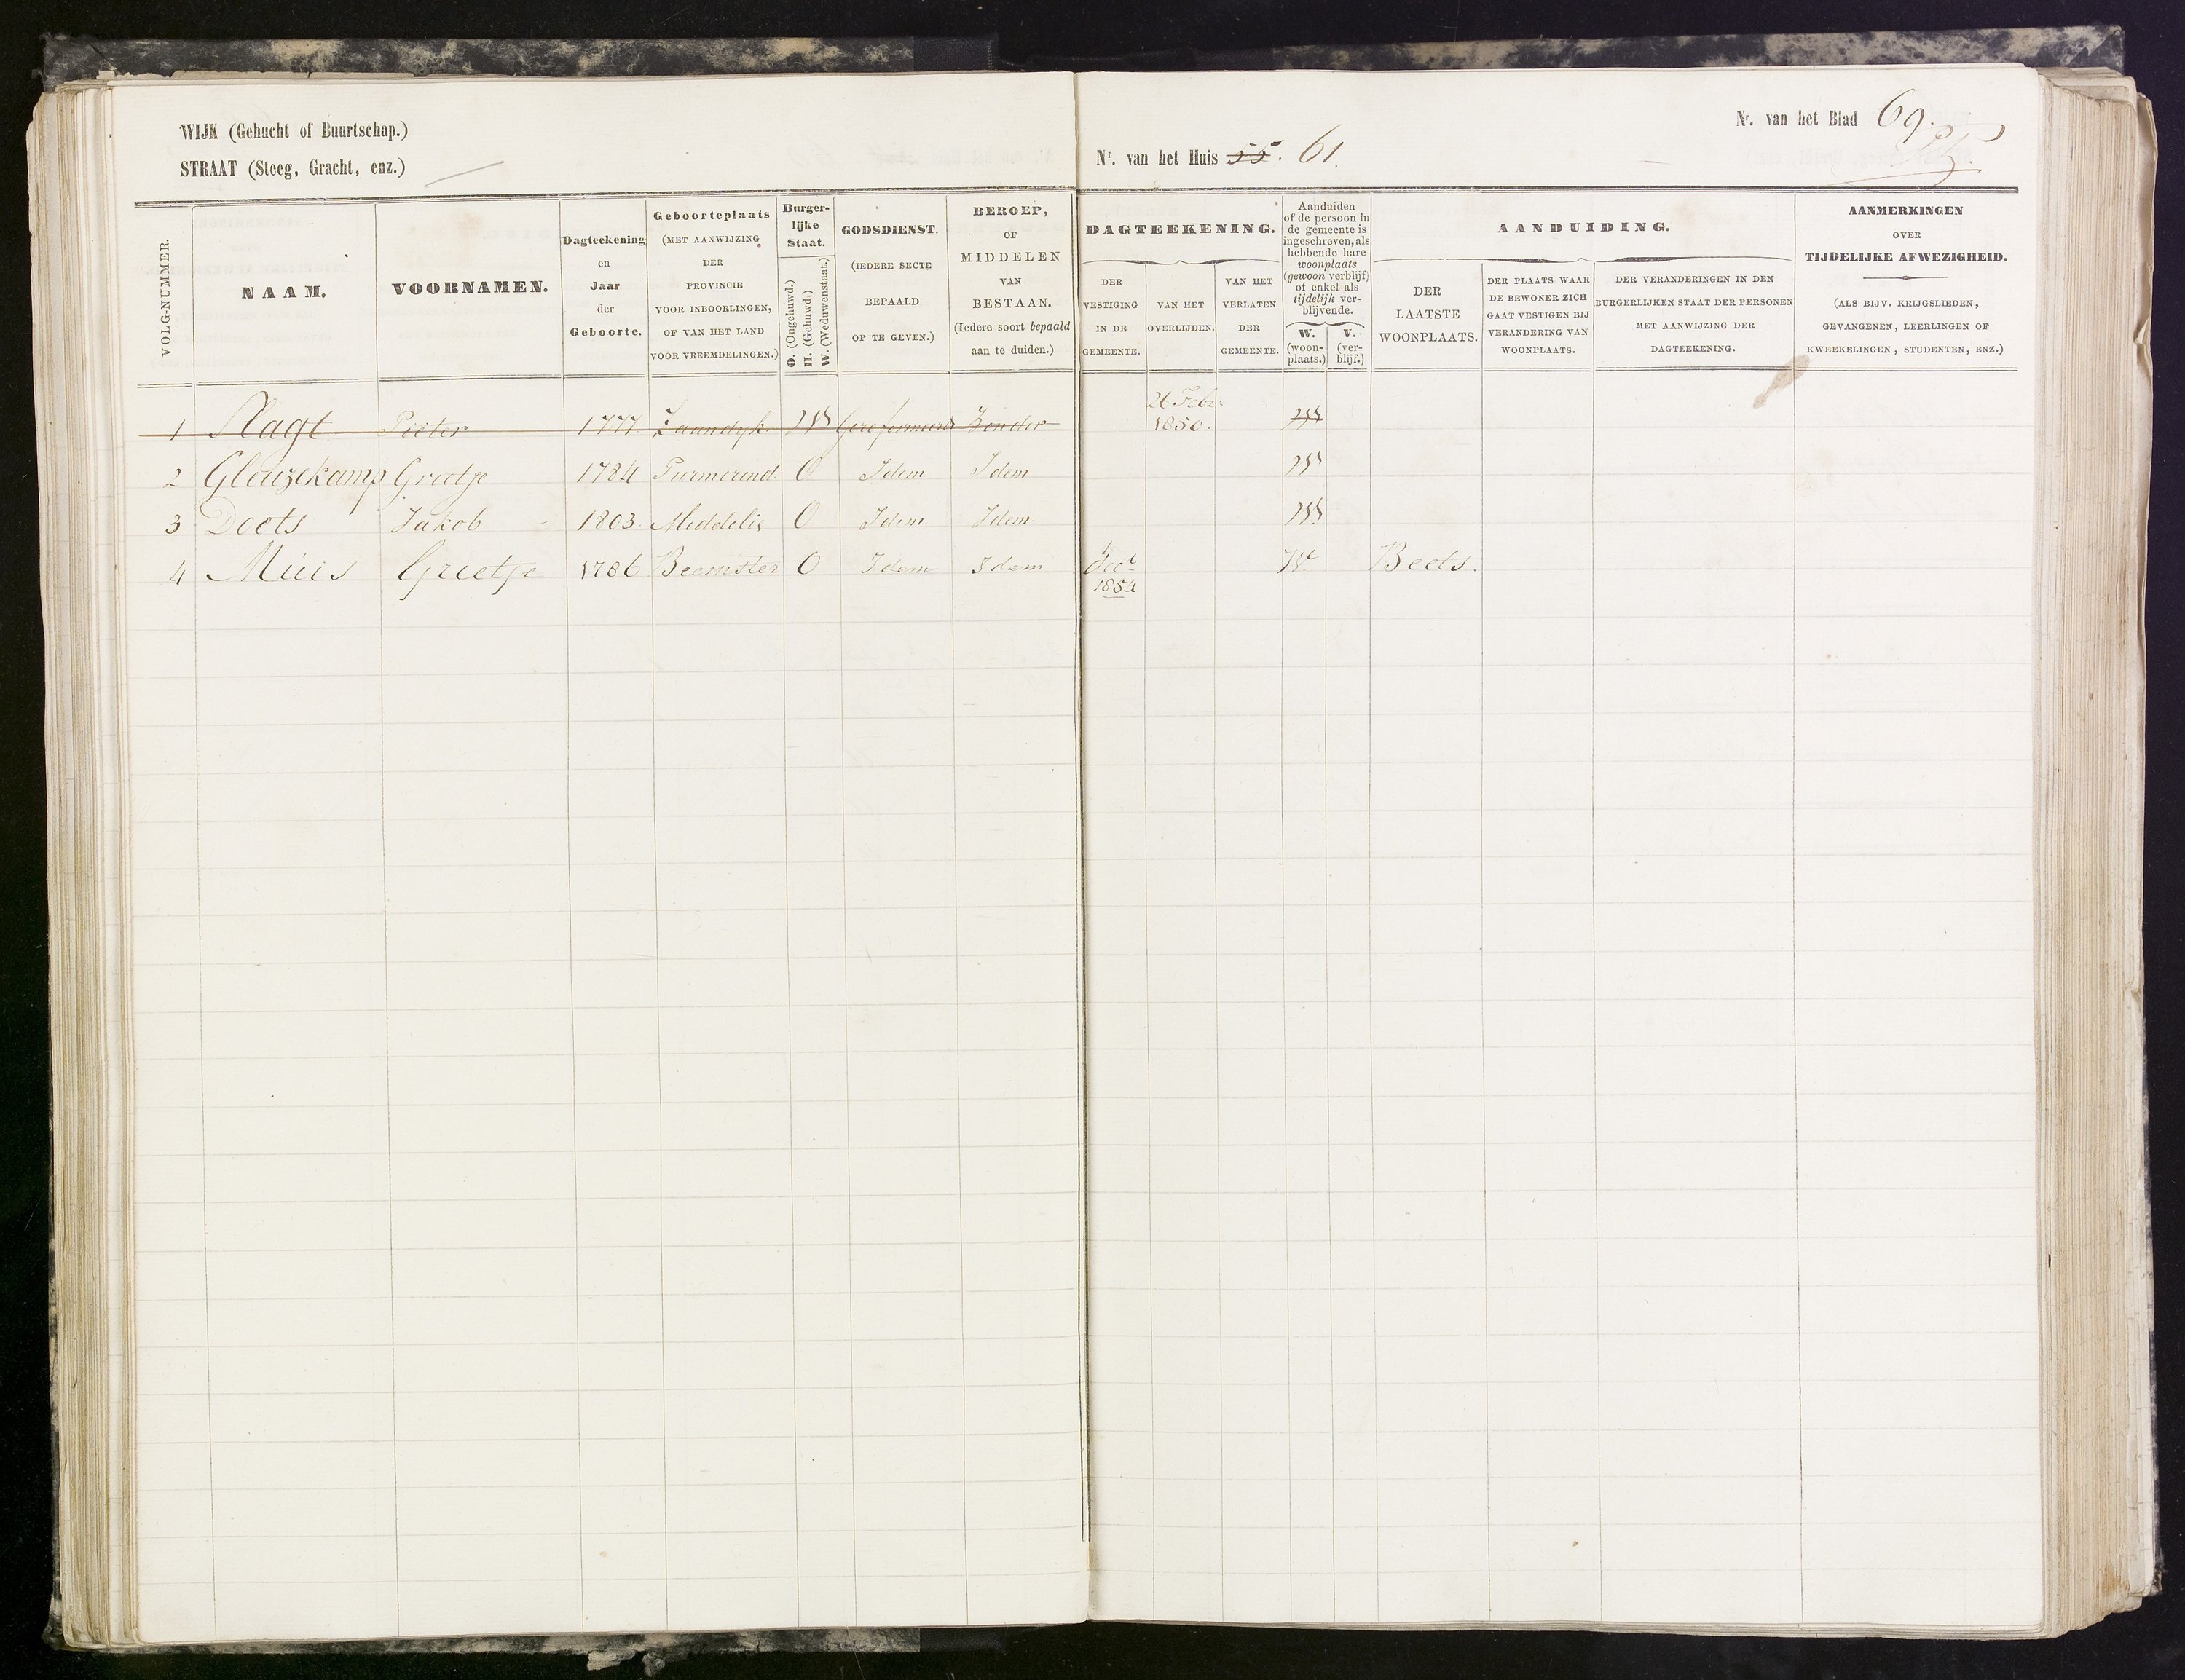 WIJK (Gehucht of Buurtschap.)
STRAAT (Steeg, Gracht, enz.)
Nr. van het Huis 55. 61.
Nr. van het Blad 69.
VOLG-NUMMER.
NAAM.
VOORNAMEN.
Dagteekening
en
Jaar
der
Geboorte.
Geboorteplaats
(MET AANWIJZING
DER
PROVINCIE
VOOR INBOORLINGEN,
OF VAN HET LAND
VOOR VREEMDELINGEN.)
Burger-
lijke
Staat.
O. (Ongehuwd.)
H. (Gehuwd.)
W. (Weduwenstaat.)
GODSDIENST.
(IEDERE SECTE
BEPAALD
OP TE GEVEN.)
BEROEP,
OF
MIDDELEN
VAN
BESTAAN.
(Iedere soort bepaald
aan te duiden.)
DAGTEEKENING.
DER
VESTIGING
IN DE
GEMEENTE.
VAN HET
OVERLIJDEN.
VAN HET
VERLATEN
DER
GEMEENTE.
Aanduiden
of de persoon in
de gemeente is
ingeschreven, als
hebbende hare
woonplaats
(gewoon verblijf)
of enkel als
tijdelijk ver-
blijvende.
W.
(woon-
plaats.)
V.
(ver-
blijf.)
AANDUIDING.
DER
LAATSTE
WOONPLAATS.
DER PLAATS WAAR
DE BEWONER ZICH
GAAT VESTIGEN BIJ
VERANDERING VAN
WOONPLAATS.
DER VERANDERINGEN IN DEN
BURGERLIJKEN STAAT DER PERSONEN
MET AANWIJZING DER
DAGTEEKENING.
AANMERKINGEN
OVER
TIJDELIJKE AFWEZIGHEID.
(ALS BIJV. KRIJGSLIEDEN,
GEVANGENEN, LEERLINGEN OF
KWEEKELINGEN, STUDENTEN, ENZ.)
1 Slagt Pieter 1777 Zaandyk W Gereformeerd Zonder 26 Febr: 1850. W
2 Gleuzekamp Grietje 1784 Purmerend O Idem Idem W
3 Doets Jakob 1803 Middelie O Idem Idem W
4 Muis Grietje 1786 Beemster O Idem Idem 1854 W. Beets.